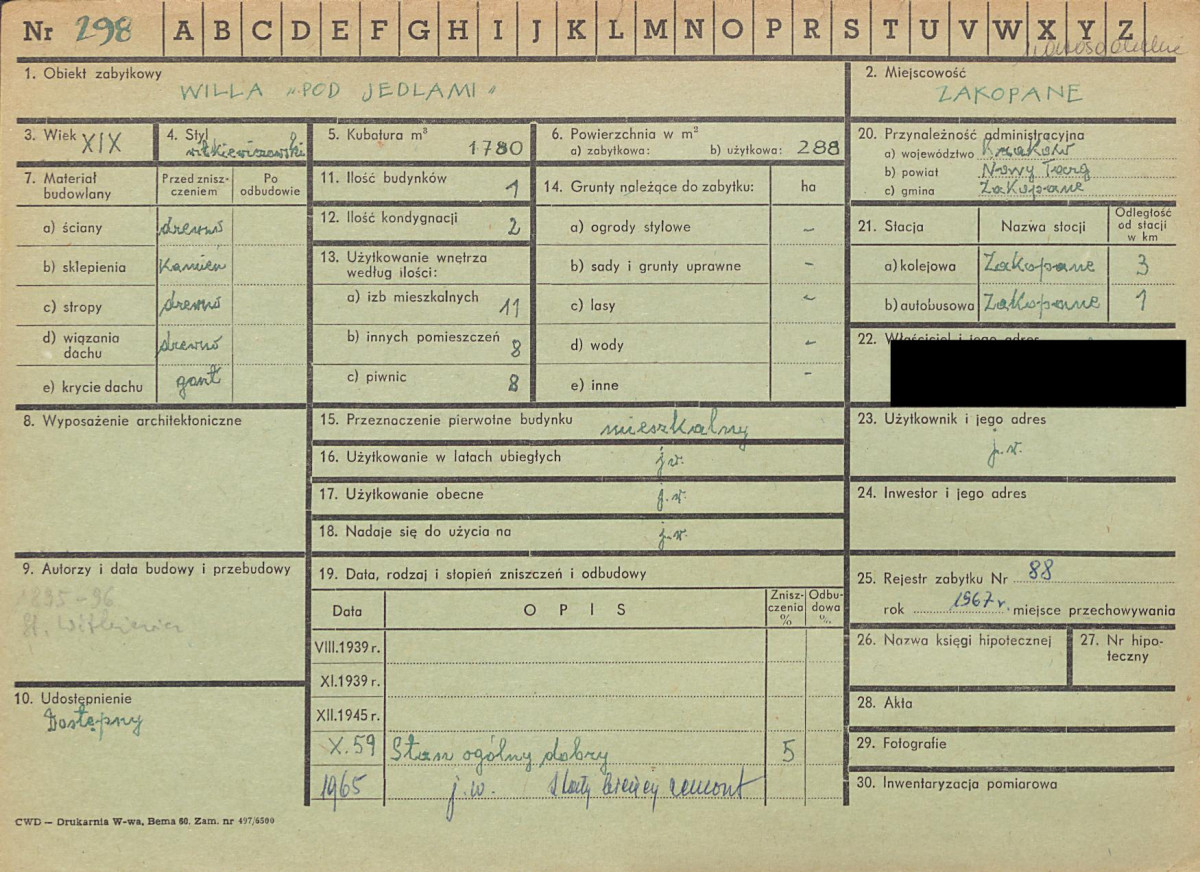 Nr 298 A B C D E F G H I J K L M N O P R S T U V W X Y Z
1. Obiekt zabytkowy
WILLA „POD JEDLAMI"
2. Miejscowość
ZAKOPANE
3. Wiek XIX
4. Styl
witkiewiczowski
5. Kubatura m³
1780
6. Powierzchnia w m²
a) zabytkowa: b) użytkowa: 288
20. Przynależność administracyjna
a) województwo Kraków
b) powiat Nowy Targ
c) gmina Zakopane
7. Materiał budowlany
Przed zniszczeniem
Po odbudowie
a) ściany drewno
b) sklepienia kamień
c) stropy drewno
d) wiązania dachu drewno
e) krycie dachu gont
11. Ilość budynków 1
12. Ilość kondygnacji 2
13. Użytkowanie wnętrza
według ilości:
a) izb mieszkalnych 11
b) innych pomieszczeń 8
c) piwnic 8
14. Grunty należące do zabytku: ha
a) ogrody stylowe -
b) sady i grunty uprawne -
c) lasy -
d) wody -
e) inne -
21. Stacja Nazwa stocji Odległość od stacji w km
a) kolejowa Zakopane 3
b) autobusowa Zakopane 1
22. Właściciel i jego adres
8. Wyposażenie architektoniczne
15. Przeznaczenie pierwotne budynku mieszkalny
16. Użytkowanie w latach ubiegłych j.w.
17. Użytkowanie obecne j.w.
18. Nadaje się do użycia na j.w.
23. Użytkownik i jego adres
j.w.
24. Inwestor i jego adres
9. Autorzy i data budowy i przebudowy
1895-96
St. Witkiewicz
19. Data, rodzaj i stopień zniszczeń i odbudowy
Data OPIS Zniszczenia % Odbudowa %
VIII.1939 r.
XI.1939 r.
XII.1945 r.
X.59 Stan ogólny dobry 5
1965 j.w. stały bieżący remont
25. Rejestr zabytku Nr 88
rok 1967 r. miejsce przechowywania
26. Nazwa księgi hipotecznej
27. Nr hipoteczny
10. Udostępnienie
Dostępny
28. Akta
29. Fotografie
30. Inwentaryzacja pomiarowa
CWD — Drukarnia W-wa, Bema 60. Zam. nr 497/6500